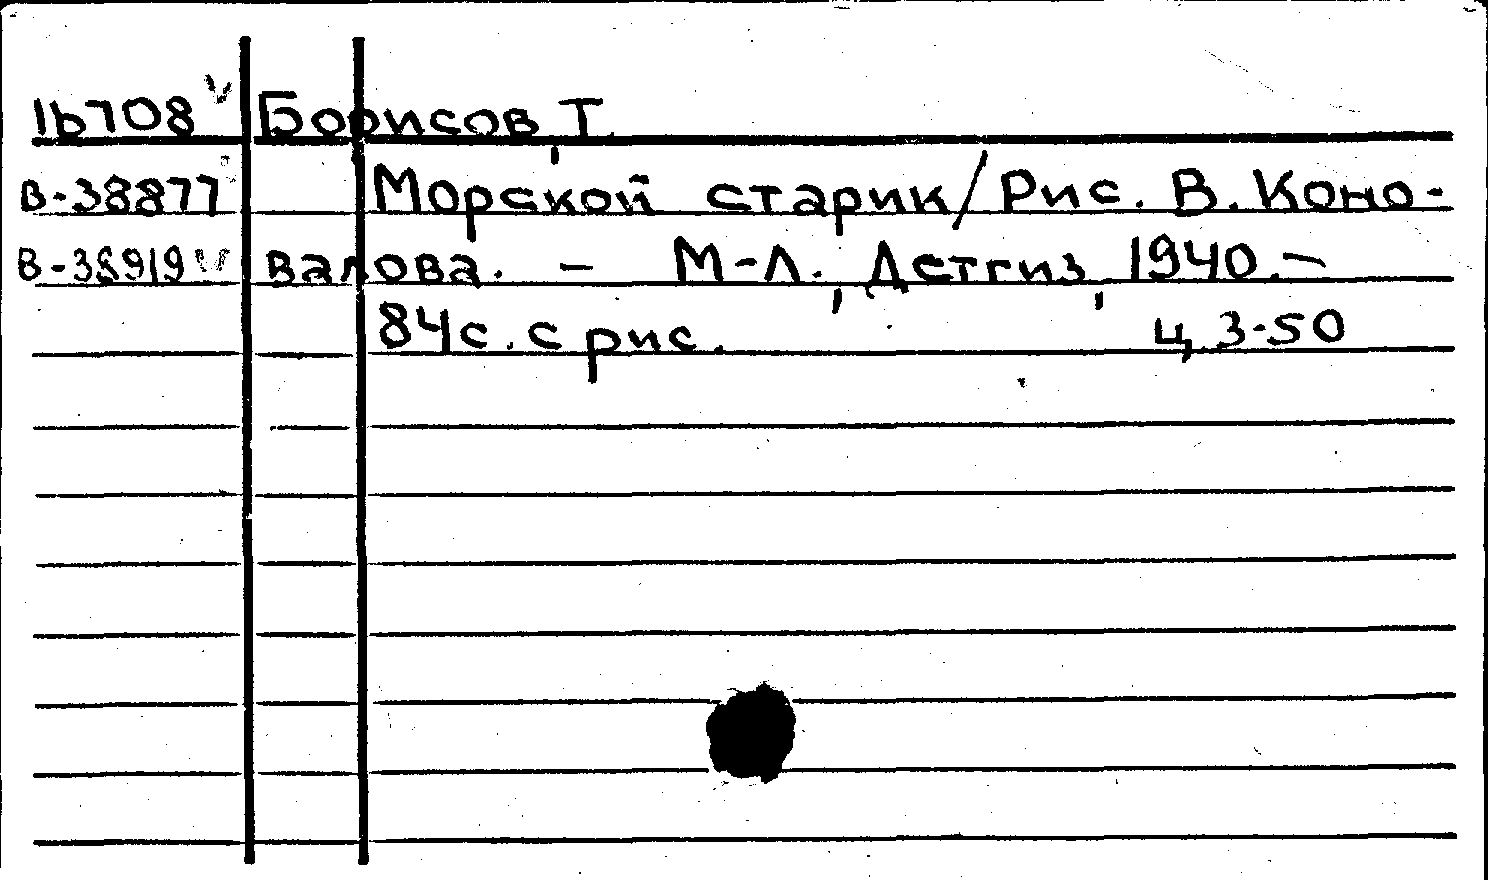 16708 V Борисов, Т.
В-38877 Морской старик/Рис. В. Коно-
В-38919 V валова. - М-Л., Детгиз, 1940.-
84с. с рис. ц. 3-50